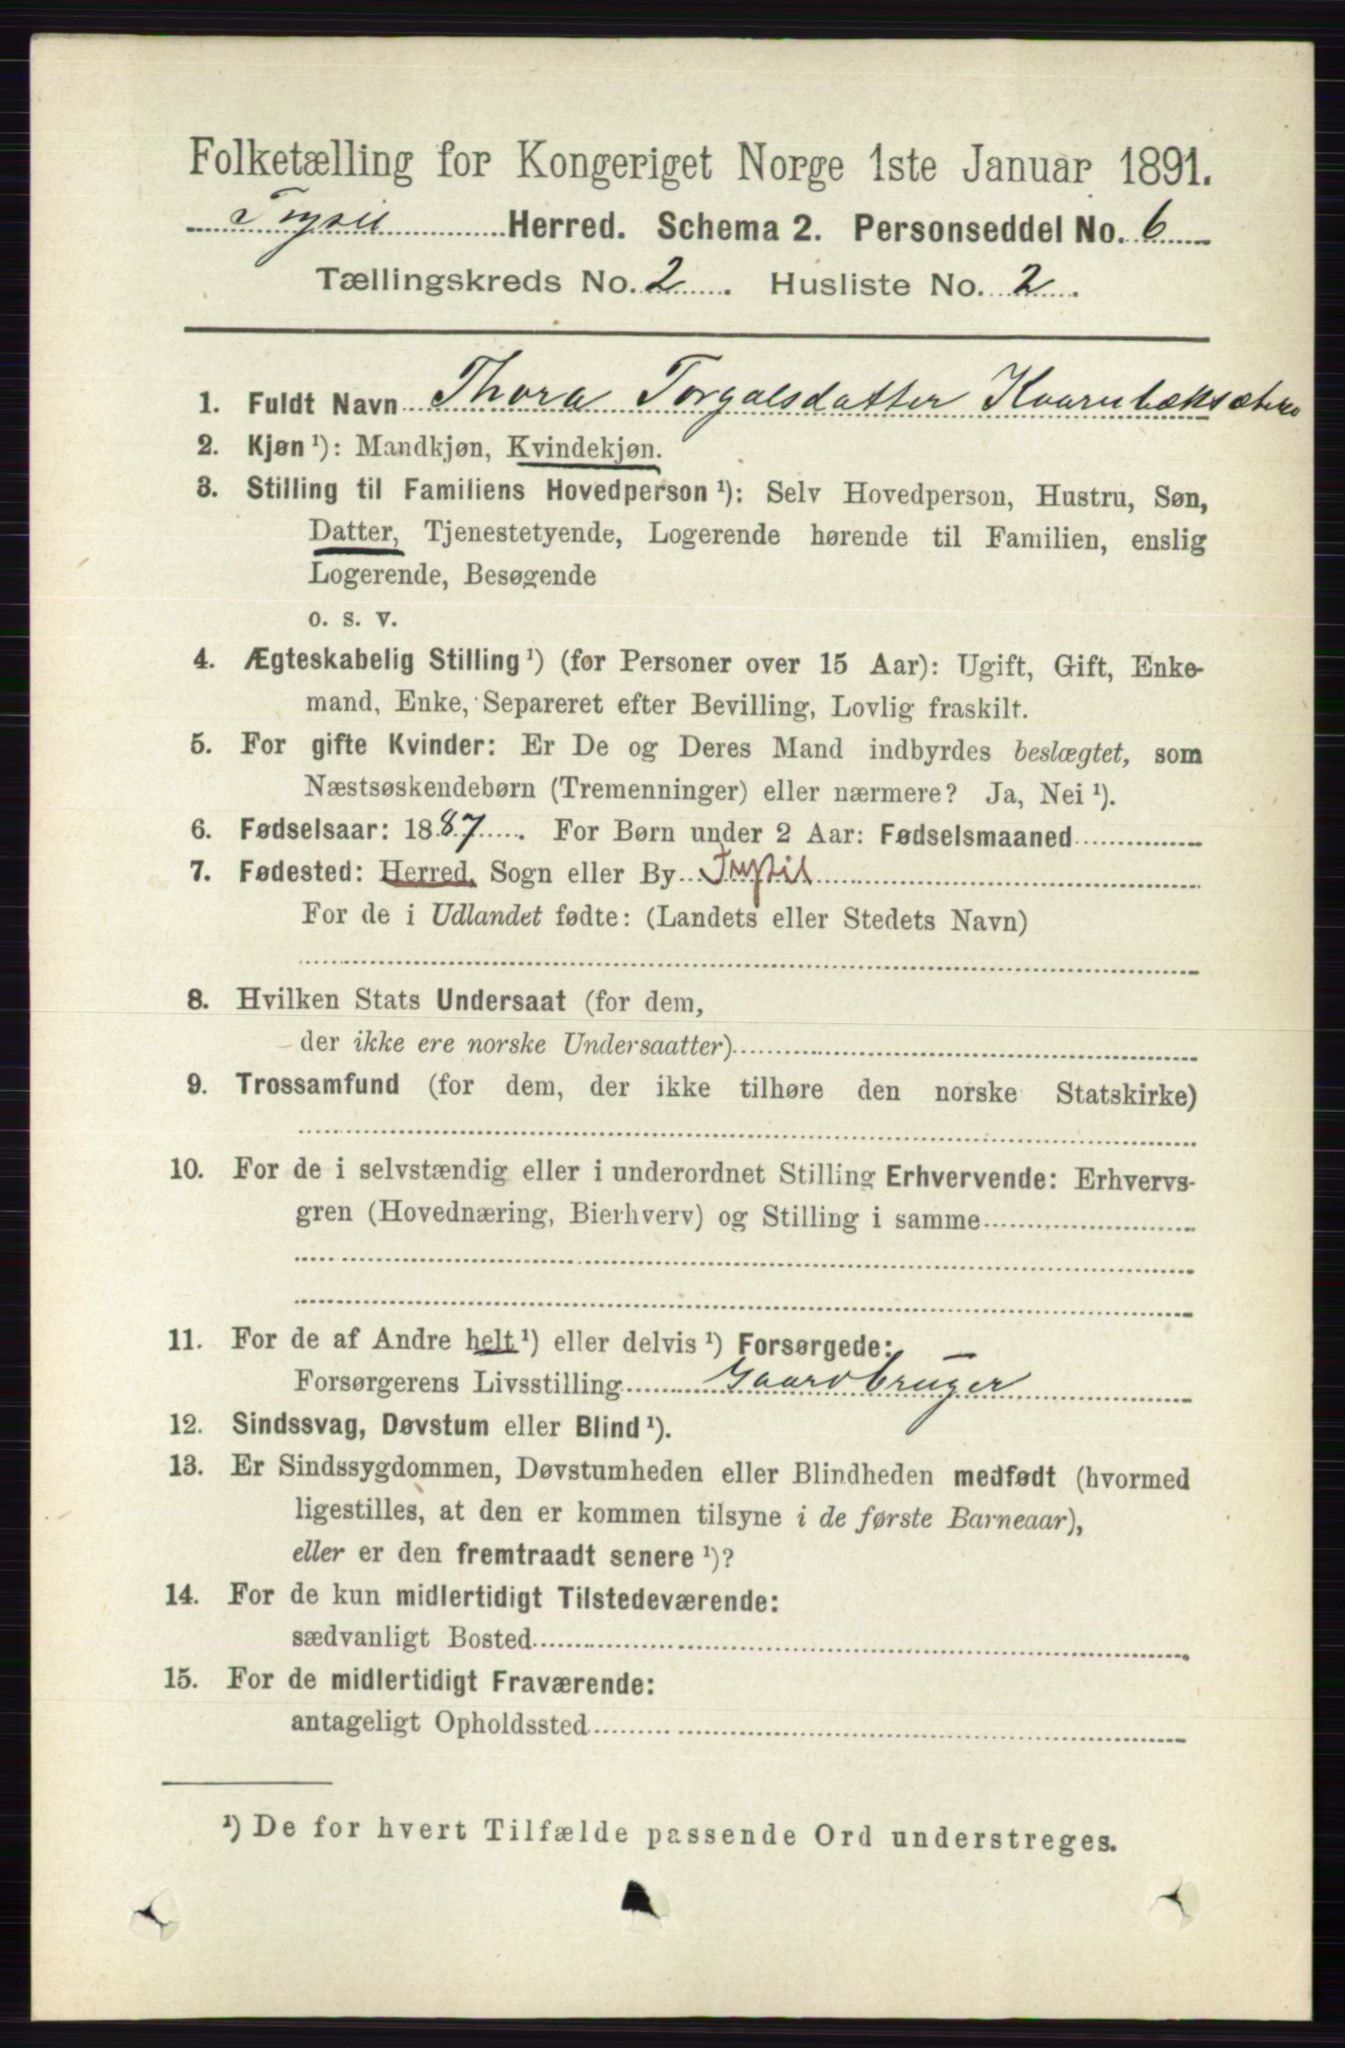 Folketælling for Kongeriget Norge 1ste Januar 1891.
Trysil Herred. Schema 2. Personseddel No. 6
Tællingskreds No. 2. Husliste No. 2.
1. Fuldt Navn Thora Torgalsdatter Kvarnbæksæteren
2. Kjøn ¹): Mandkjøn, Kvindekjøn.
3. Stilling til Familiens Hovedperson ¹): Selv Hovedperson, Hustru, Søn,
Datter, Tjenestetyende, Logerende hørende til Familien, enslig
Logerende, Besøgende
o. s. v.
4. Ægteskabelig Stilling ¹) (før Personer over 15 Aar): Ugift, Gift, Enke-
mand, Enke, Separeret efter Bevilling, Lovlig fraskilt.
5. For gifte Kvinder: Er De og Deres Mand indbyrdes beslægtet, som
Næstsøskendebørn (Tremenninger) eller nærmere? Ja, Nei ¹).
6. Fødselsaar: 1887. For Børn under 2 Aar: Fødselsmaaned
7. Fødested: Herred, Sogn eller By Trysil
For de i Udlandet fødte: (Landets eller Stedets Navn)
8. Hvilken Stats Undersaat (for dem,
der ikke ere norske Undersaatter)
9. Trossamfund (for dem, der ikke tilhøre den norske Statskirke)
10. For de i selvstændig eller i underordnet Stilling Erhvervende: Erhvervs-
gren (Hovednæring, Bierhverv) og Stilling i samme
11. For de af Andre helt ¹) eller delvis ¹) Forsørgede:
Forsørgerens Livsstilling Gaardbruger
12. Sindssvag, Døvstum eller Blind ¹).
13. Er Sindssygdommen, Døvstumheden eller Blindheden medfødt (hvormed
ligestilles, at den er kommen tilsyne i de første Barneaar),
eller er den fremtraadt senere ¹)?
14. For de kun midlertidigt Tilstedeværende:
sædvanligt Bosted
15. For de midlertidigt Fraværende:
antageligt Opholdssted
¹) De for hvert Tilfælde passende Ord understreges.